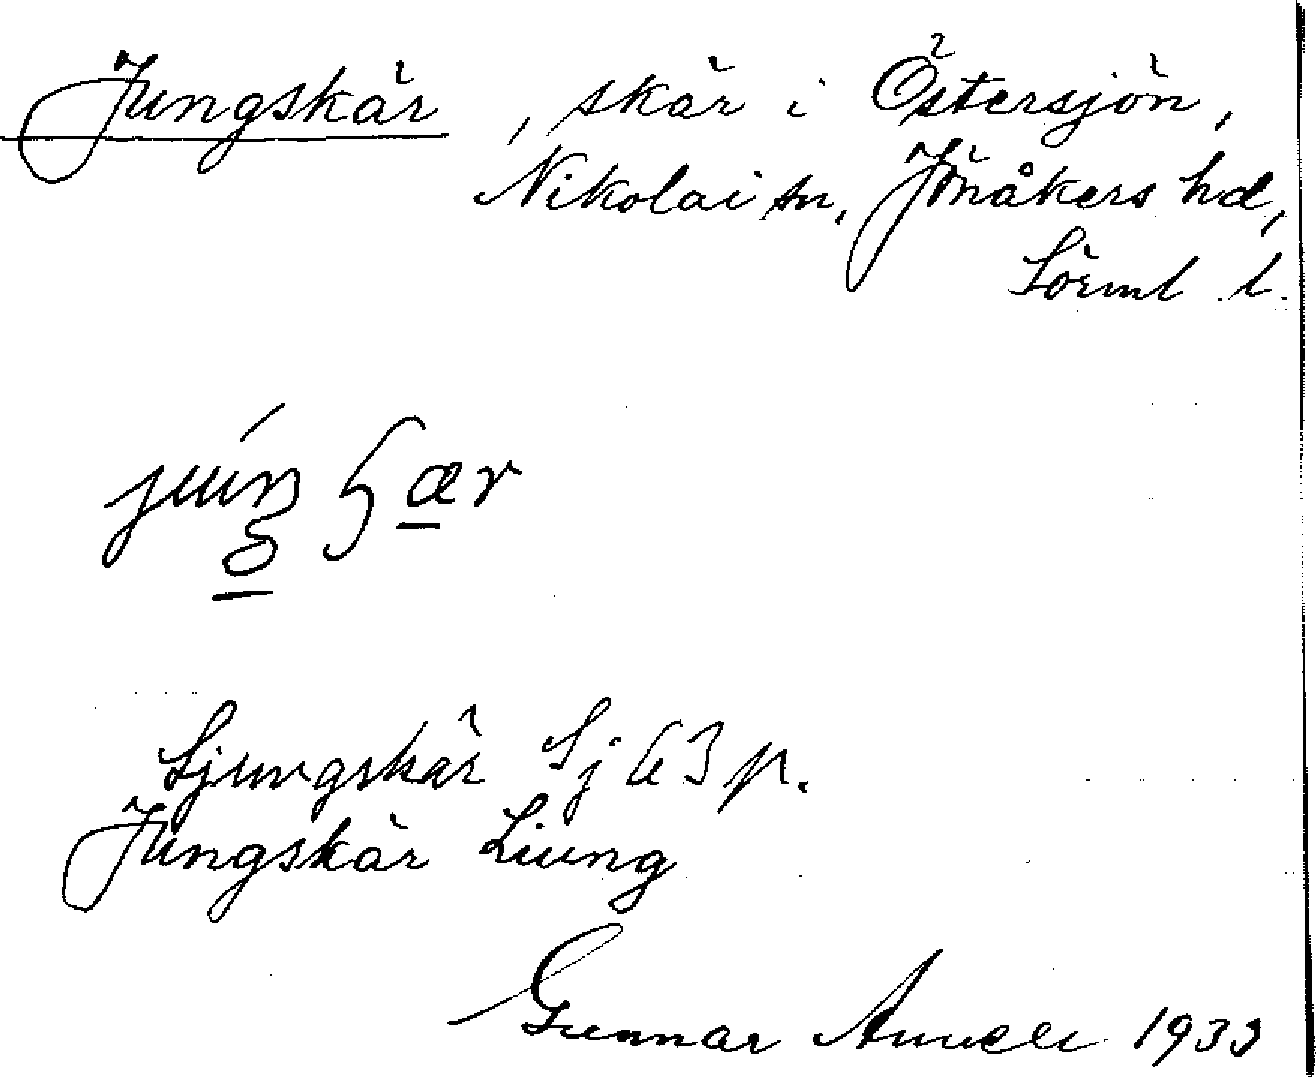 Jungskär, skär i Östersjön,
Nikolai sn, Jönåkers hd,
Sörml l.
Ljungskär Sj 63 p.
Jungskär Liung
Gunnar 1933